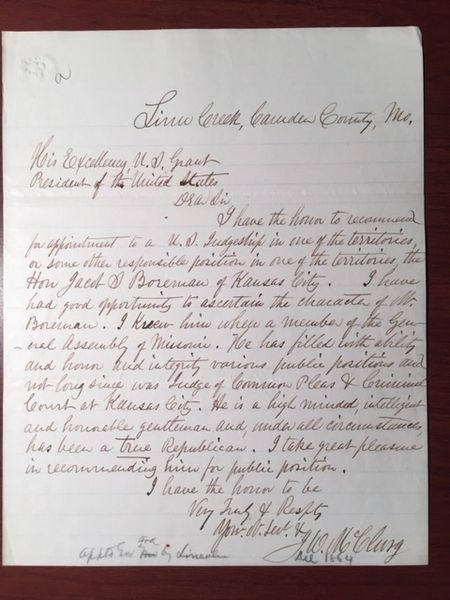 Linn Creek, Camden County, Mo.
His Excellency, U. S. Grant
President of the United States
Dear Sir
I have the honor to recommend
for appointment to a U. S. Judgeship in one of the territories,
or some other responsible position in one of the territories, the
Hon Jacob S Boreman of Kansas City. I have
had good opportunity to ascertain the character of Mr.
Boreman. I knew him when a member of the Gen-
-eral Assembly of Missouri. He has filled with ability
and honor and integrity various public positions and
not long since was Judge of Common Pleas & Criminal
Court at Kansas City. He is a high minded, intelligent
and honorable gentleman and, under all circumstances,
has been a true Republican. I take great pleasure
in recommending him for public position.
I have the honor to be
Very Truly & Respty
Your Ob. Sevt. &
J. W. McClurg
by Lincoln
1864